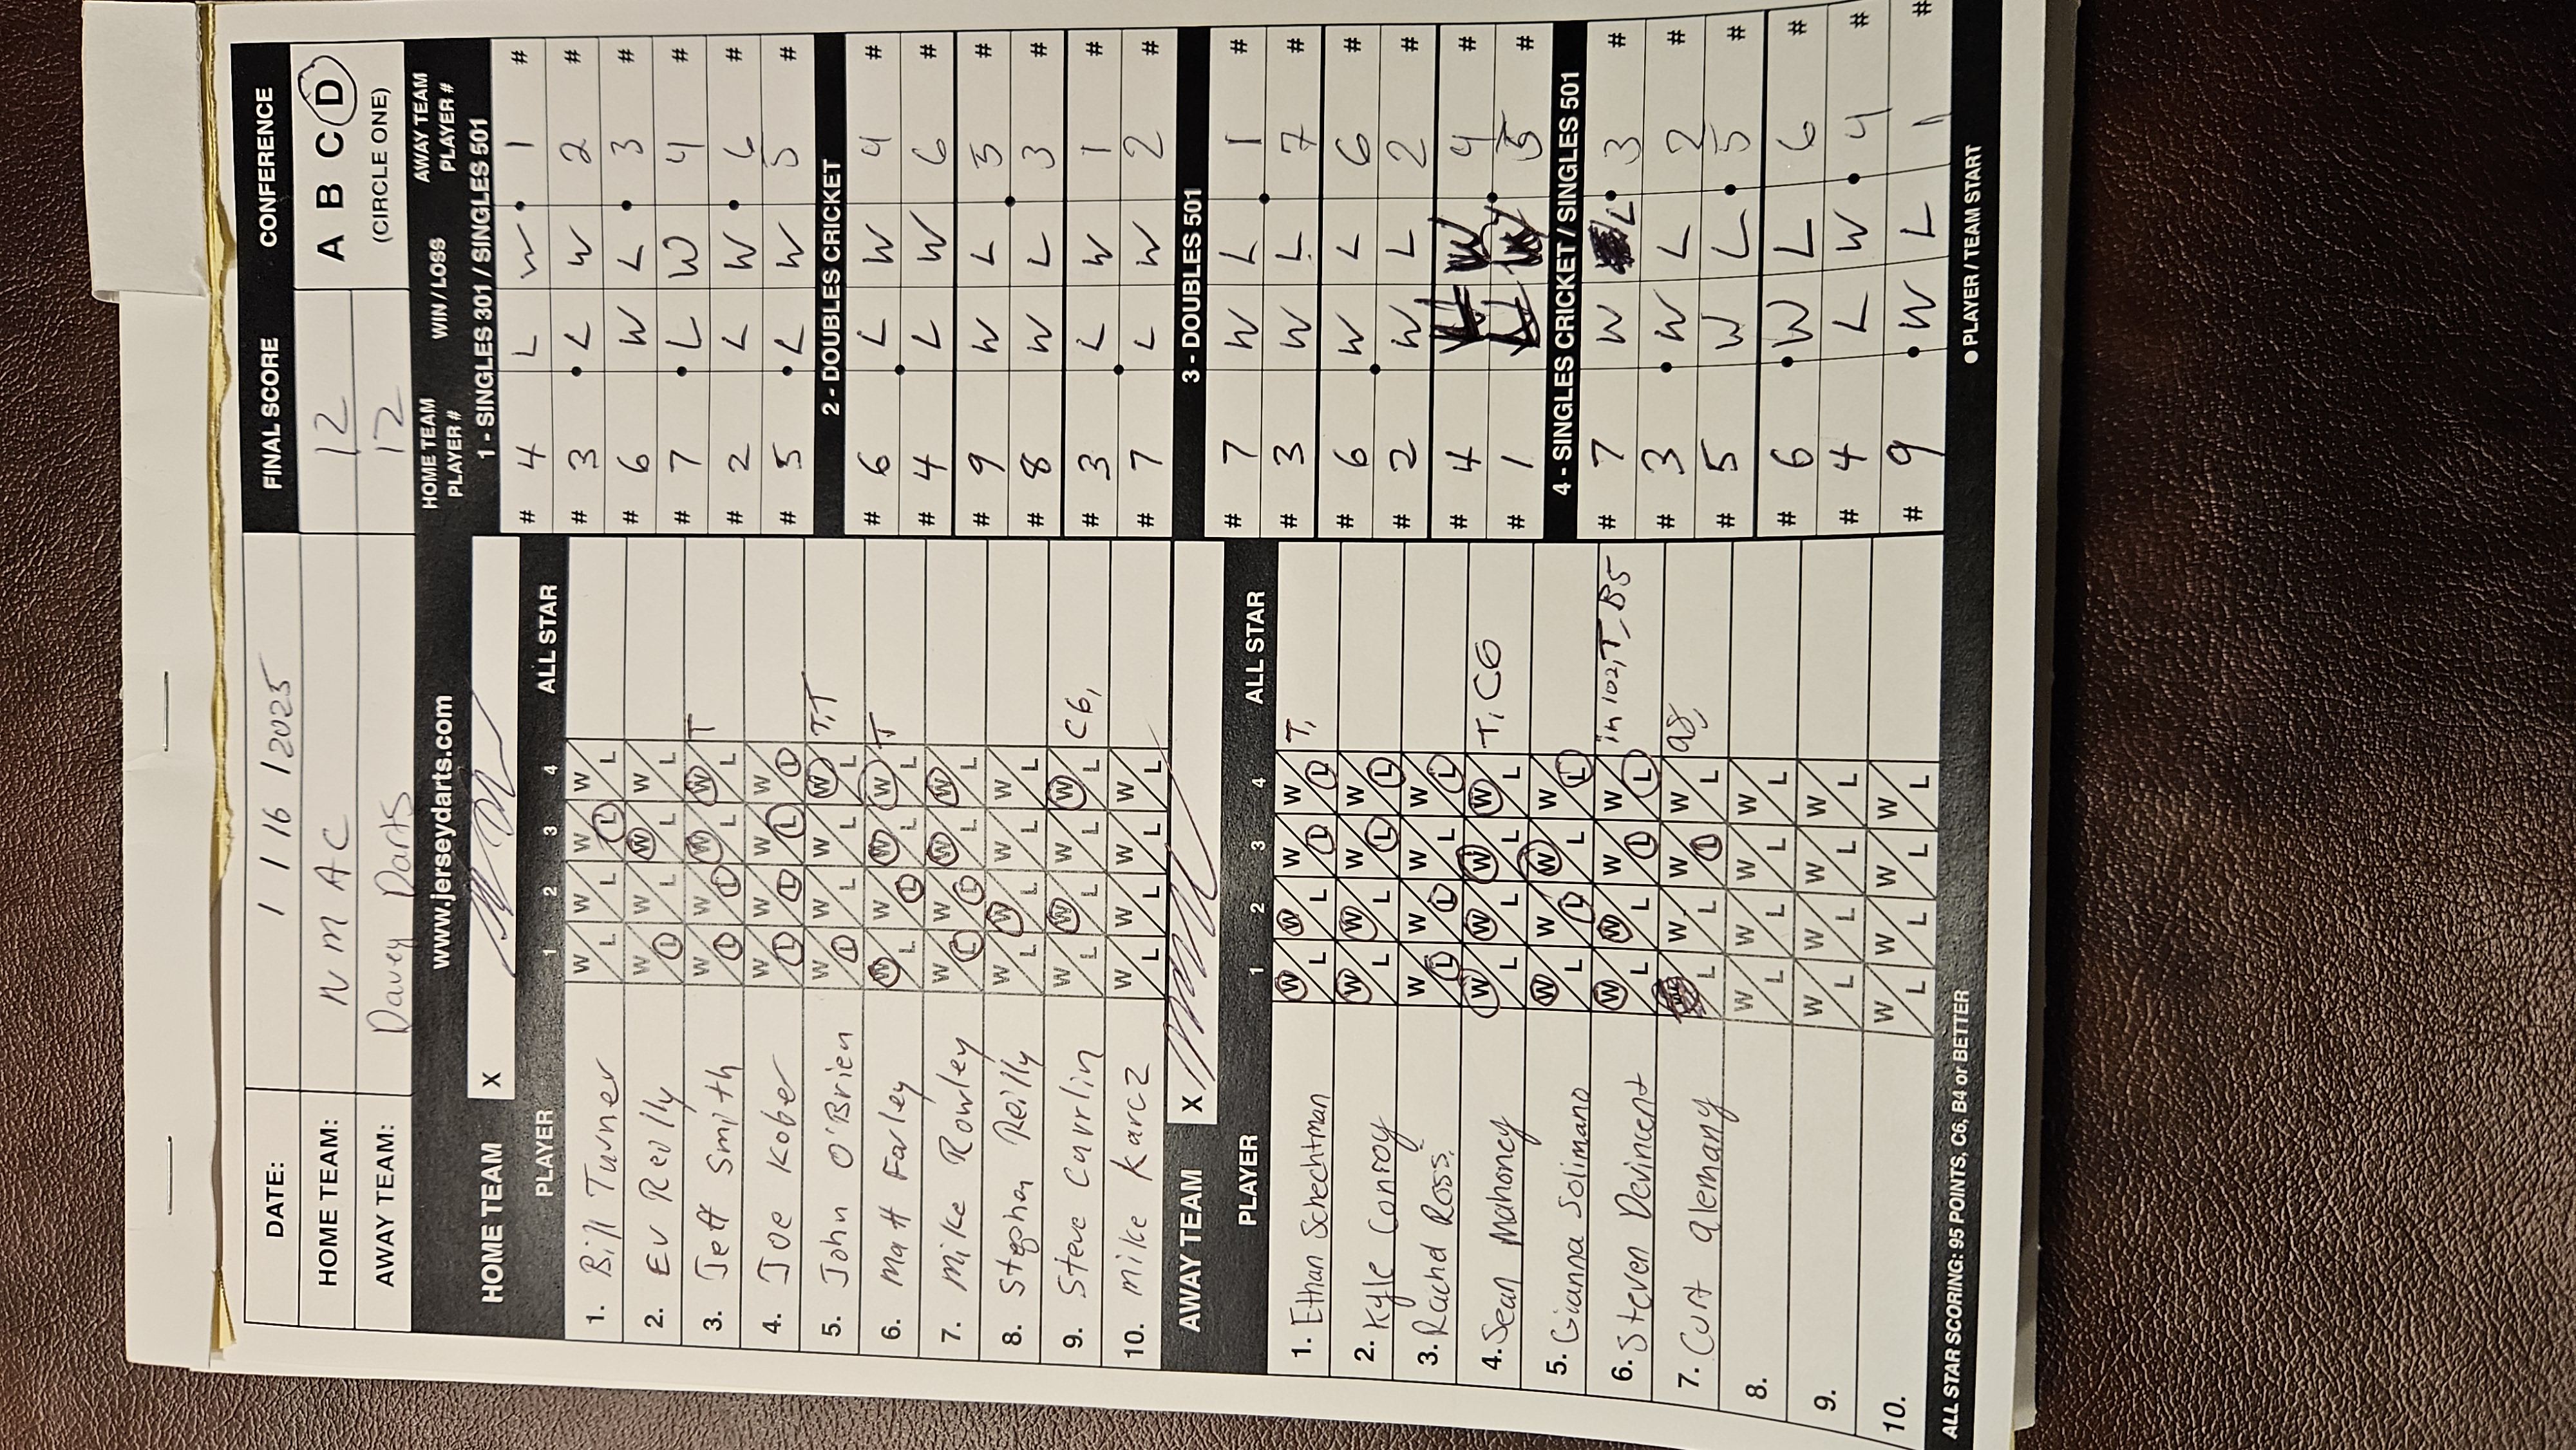 DATE: 1 / 16 / 2025 FINAL SCORE CONFERENCE
HOME TEAM: N M A C 12 A B C D
AWAY TEAM: Davey Darts 12 (CIRCLE ONE)
www.jerseydarts.com
HOME TEAM X
PLAYER 1 2 3 4 ALL STAR
1. Bill Turner W L W L W L W L
2. Ev Reilly W L W L W L W L
3. Jeff Smith W L W L W L W L T
4. Joe Kober W L W L W L W L
5. John O'Brien W L W L W L W L T,T
6. Matt Farley W L W L W L W L T
7. Mike Rowley W L W L W L W L
8. Stephen Reilly W L W L W L W L
9. Steve Carlin W L W L W L W L C6,
10. Mike Karcz W L W L W L W L
AWAY TEAM X
PLAYER 1 2 3 4 ALL STAR
1. Ethan Schechtman W L W L W L W L T,
2. Kyle Conroy W L W L W L W L
3. Rachel Ross W L W L W L W L
4. Sean Mahoney W L W L W L W L T, C6
5. Gianna Solimano W L W L W L W L
6. Steven Devincent W L W L W L W L in 102, T, B5
7. Curt Alemany L W L W L W L 98,
8. W L W L W L W L
9. W L W L W L W L
10. W L W L W L W L
ALL STAR SCORING: 95 POINTS, C6, B4 or BETTER
HOME TEAM PLAYER # WIN / LOSS AWAY TEAM PLAYER #
1 - SINGLES 301 / SINGLES 501
# 4 L W 1 #
# 3 L W 2 #
# 6 W L 3 #
# 7 L W 4 #
# 2 L W 6 #
# 5 L W 5 #
2 - DOUBLES CRICKET
# 6 L W 4 #
# 4 L W 6 #
# 9 W L 5 #
# 8 W L 3 #
# 3 L W 1 #
# 7 L W 2 #
3 - DOUBLES 501
# 7 W L 1 #
# 3 W L 7 #
# 6 W L 6 #
# 2 W L 2 #
# 4 L W 4 #
# 1 L W 5 #
4 - SINGLES CRICKET / SINGLES 501
# 7 W L 3 #
# 3 W L 2 #
# 5 W L 5 #
# 6 W L 6 #
# 4 L W 4 #
# 9 W L 1 #
● PLAYER / TEAM START